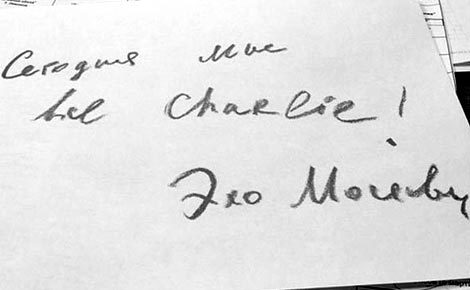 Сегодня мы
все Charlie!
Эхо Москвы